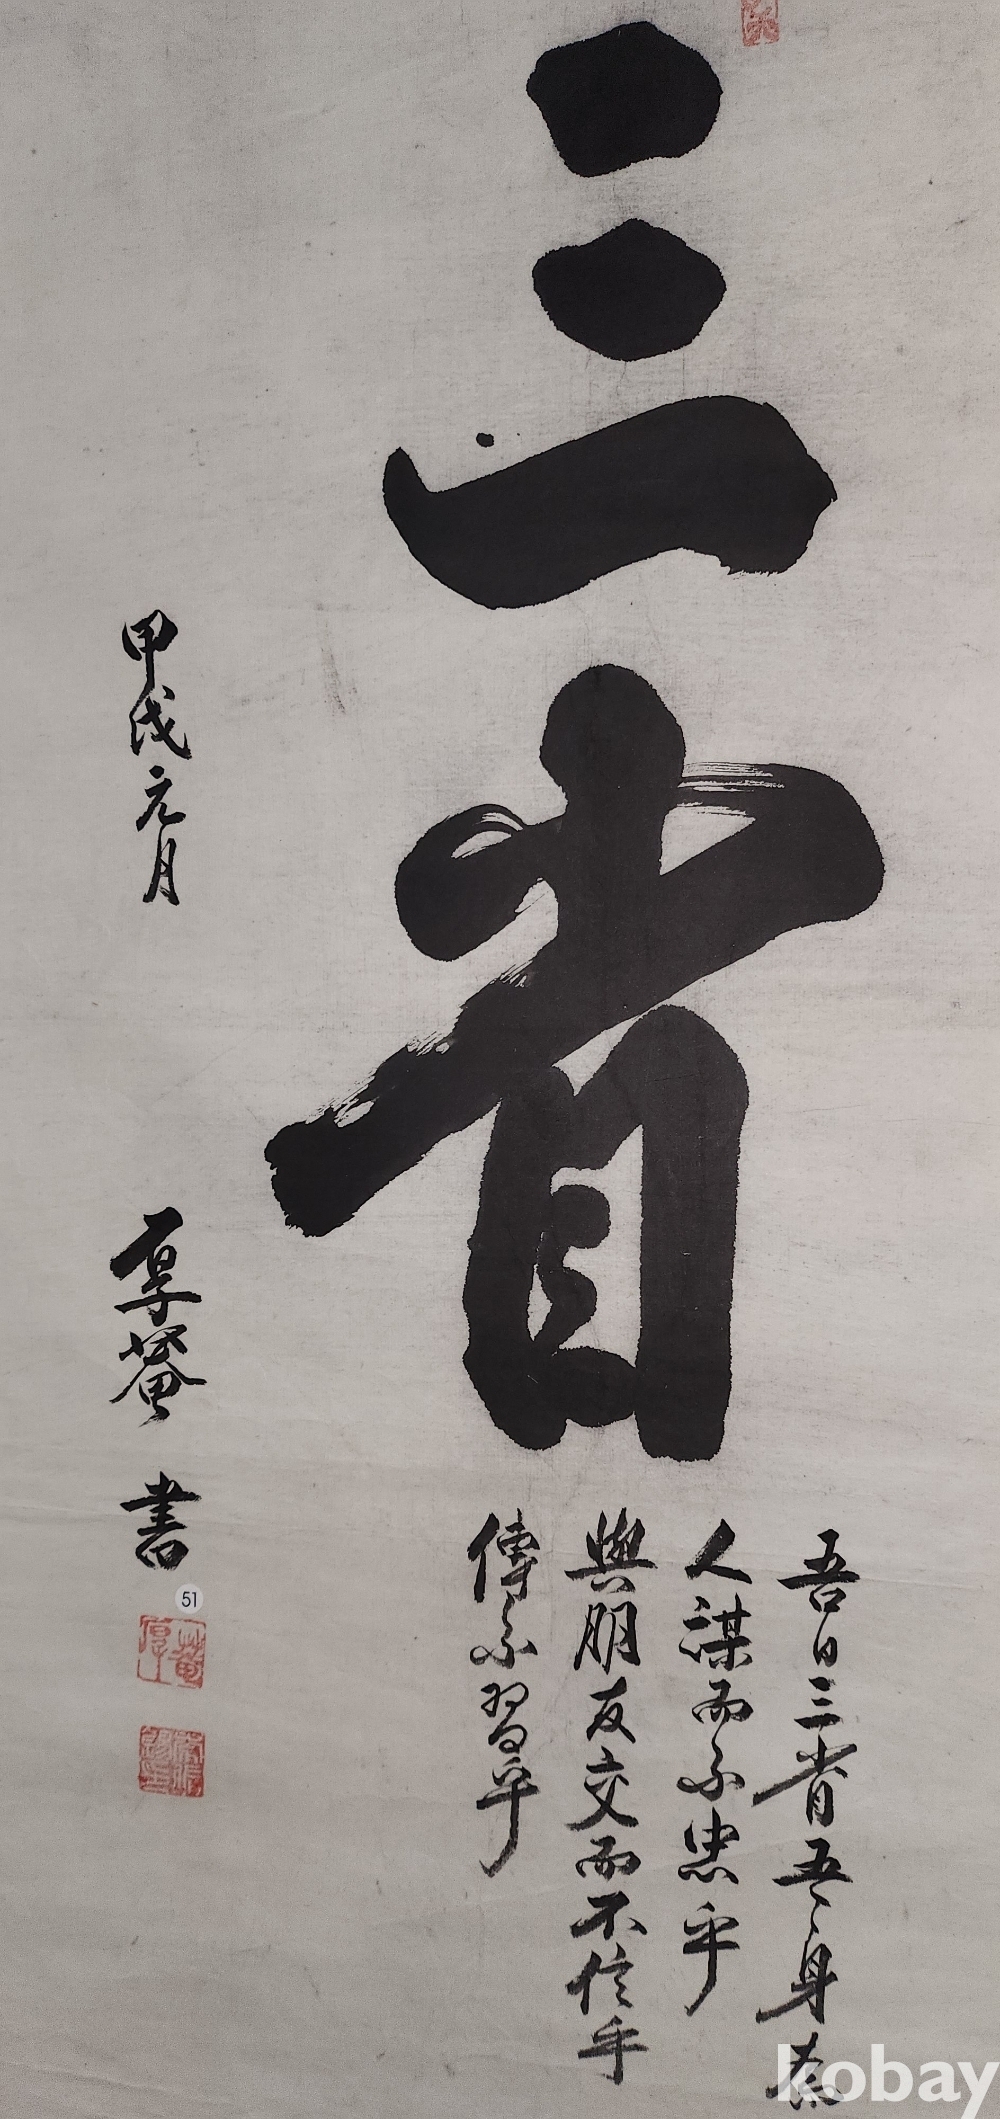 三省
吾日三省吾身為
人謀而不忠乎
與朋友交而不信乎
傳不習乎
甲戌元月
厚菴 書
51
kobay